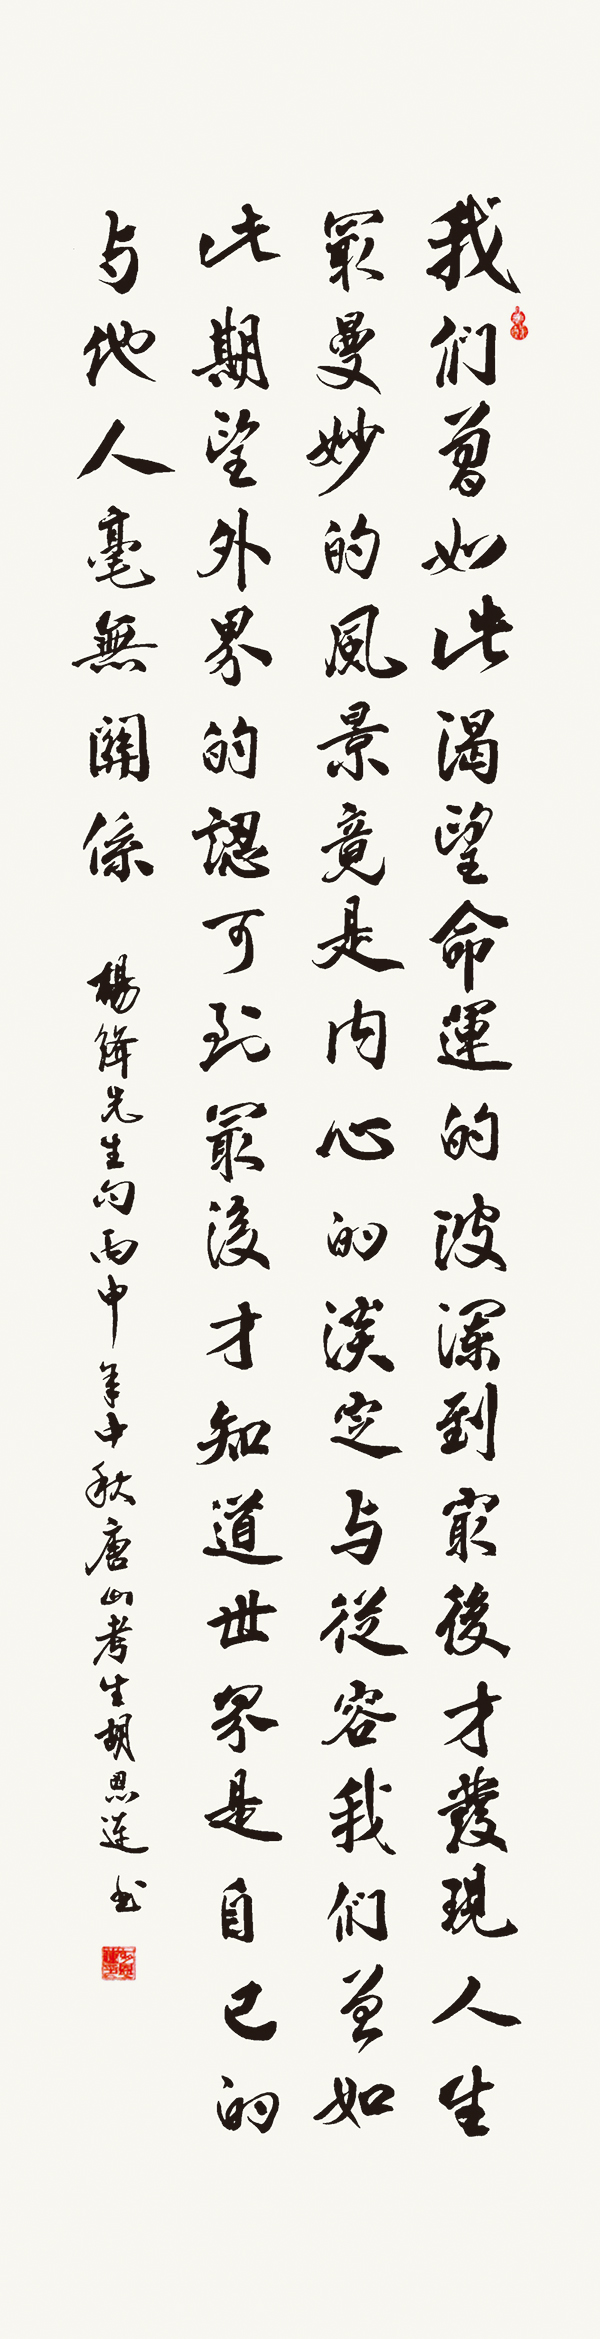 我们曾如此渴望命運的波澜到最後才發現人生
最曼妙的風景竟是内心的淡定与從容我们曾如
此期望外界的認可到最後才知道世界是自己的
与他人毫無關係
楊絳先生句丙申年中秋唐山考生胡思連书